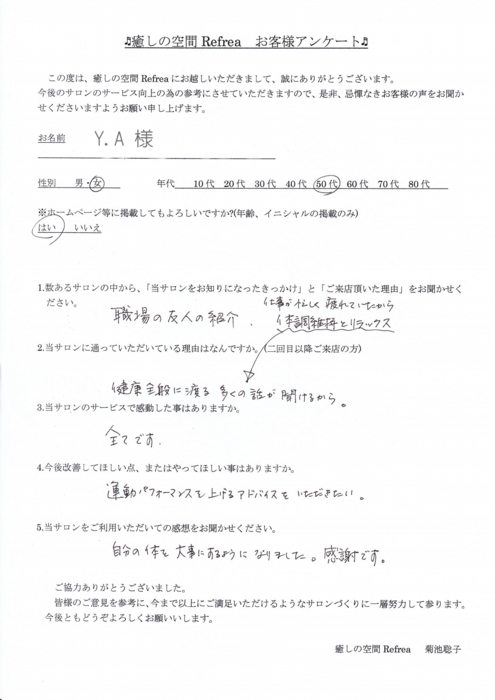 ♫癒しの空間 Refrea　お客様アンケート♫
この度は、癒しの空間 Refrea にお越しいただきまして、誠にありがとうございます。
今後のサロンのサービス向上の為の参考にさせていただきますので、是非、忌憚なきお客様の声をお聞か
せくださいますようお願い申し上げます。
お名前　Y.A 様
性別　男・女　年代　10代　20代　30代　40代　50代　60代　70代　80代
※ホームページ等に掲載してもよろしいですか?(年齢、イニシャルの掲載のみ)
はい　いいえ
1.数あるサロンの中から、「当サロンをお知りになったきっかけ」と「ご来店頂いた理由」をお聞かせく
ださい。
仕事が忙しく疲れていたから
職場の友人の紹介. 体調維持とリラックス
2.当サロンに通っていただいている理由はなんですか。(二回目以降ご来店の方)
健康全般に渡る多くの話が聞けるから。
3.当サロンのサービスで感動した事はありますか。
全てです.
4.今後改善してほしい点、またはやってほしい事はありますか。
運動パフォーマンスを上げるアドバイスをいただきたい。
5.当サロンをご利用いただいての感想をお聞かせください。
自分の体を大事にするようになりました。感謝です。
ご協力ありがとうございました。
皆様のご意見を参考に、今まで以上にご満足いただけるようなサロンづくりに一層努力して参ります。
今後ともどうぞよろしくお願いいします。
癒しの空間 Refrea　菊池聡子